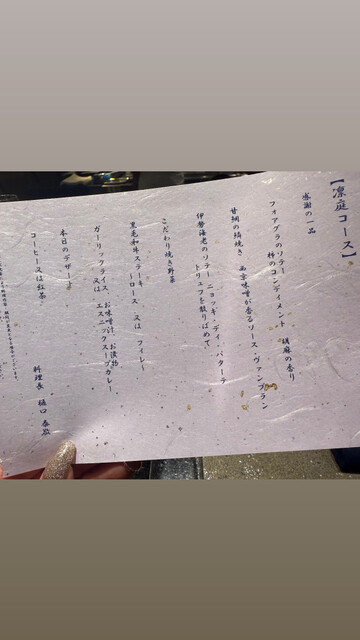 【凛庭コース】
感謝の一品
フォアグラのソテー 柿のコンディメント 胡麻の香り
甘鯛の鱗焼き 西京味噌が香るソース・ヴァンブラン
伊勢海老のソテー ニョッキ・ディ・パターテ
トリュフを散りばめて
こだわり焼き野菜
黒毛和牛ステーキ
〜ロース 又は フィレ〜
ガーリックライス、お味噌汁、お漬物
又は エスニックスープカレー
本日のデザート
コーヒー又は紅茶
料理長 樋口